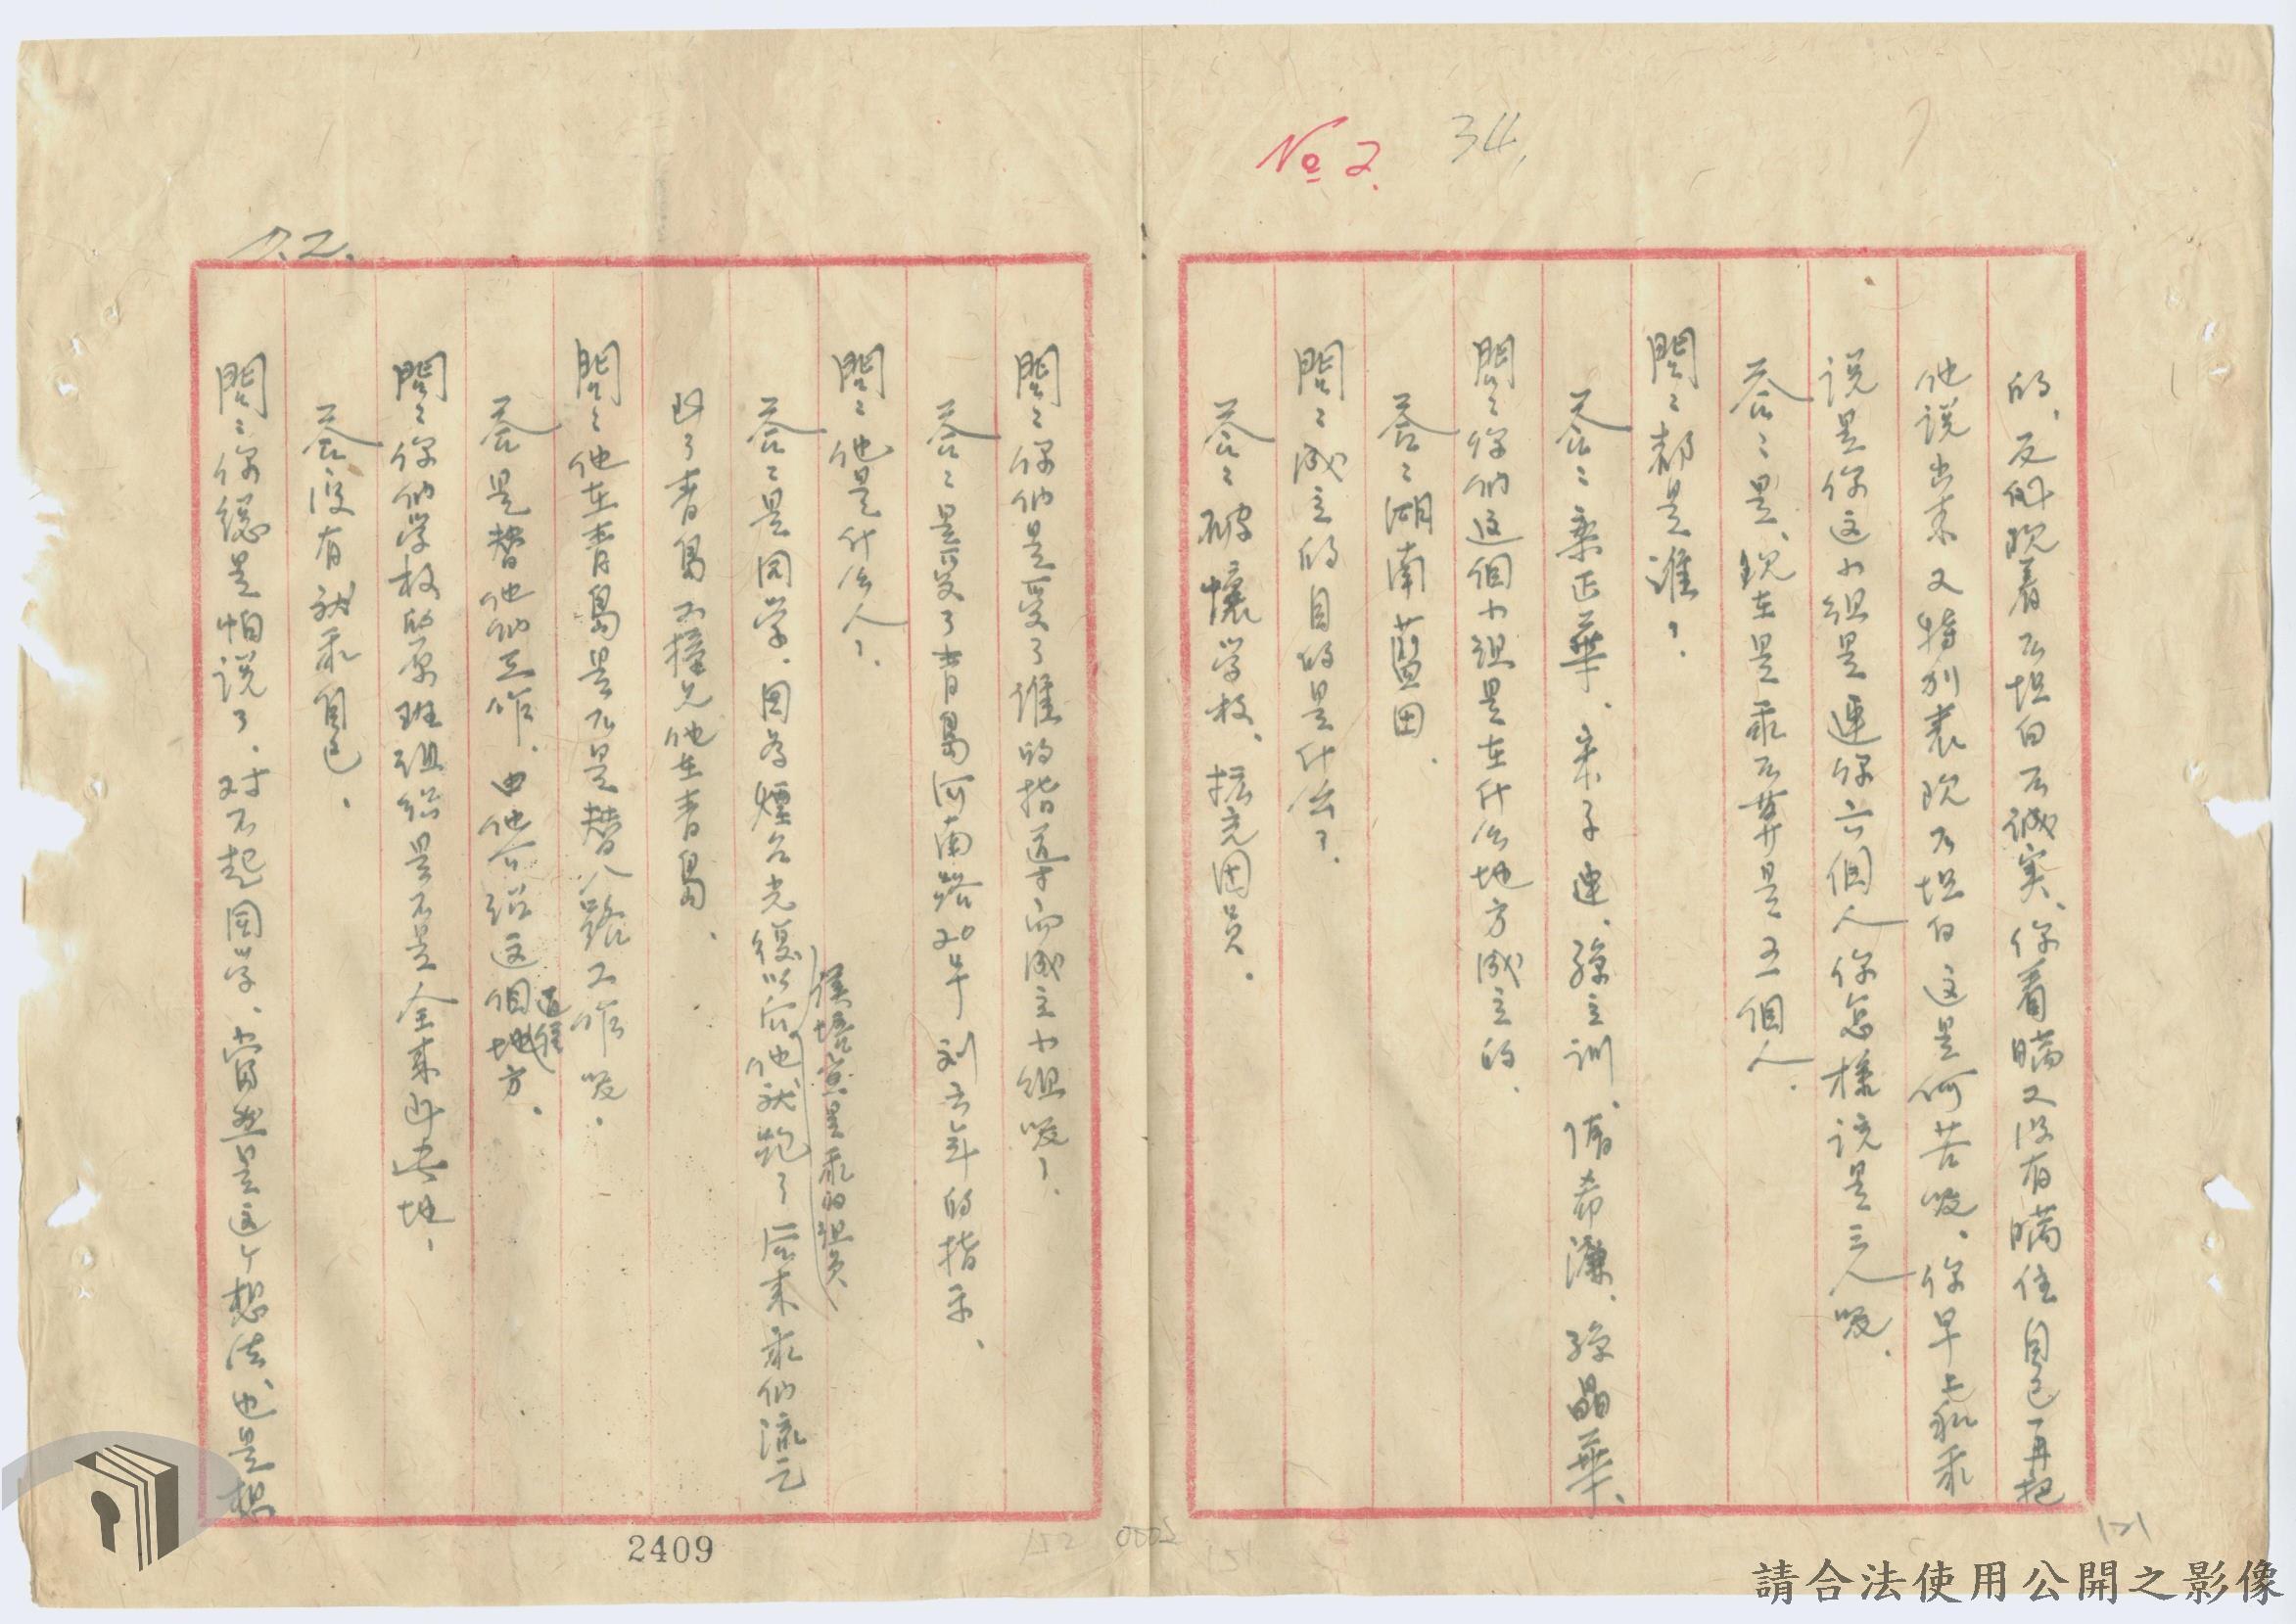 No 2.
34,
的、反倒說着不坦白不誠实、你看瞞又没有瞞住自己再把
他説出来又特别表現不坦白这是何苦呢、你早上和我
説是你这小组是連你六個人你怎樣該是三人呢、
答：是、現在是我不算是五個人、
問：都是誰？
答：正華、宋子連、孫立訓、傅希濂、孫晶華、
問：你們这個小組是在什么地方成立的、
答：湖南藍田、
問：成立的目的是什么？
答：破壞学校、擴充団員、
問：你們是受了誰的指導而成立小组呢？
答：是受了青島河南路20号刘云年的指示、
問：他是什么人？
是我的组员
答：是同学、因为煙台光復以后他就跑了后来我們流亡
到了青島才撞見他在青島、
問：他在青島是不是替八路工作呢、
答是替他們工作、由他介绍这個地方、
道程
問：你們学校的原班组织是不是全来此地、
答没有就我自己、
問：你總是怕説了、对不起同学、當然是这个想法、也是想
7.2.
2409
152
0002
151
121
請合法使用公開之影像